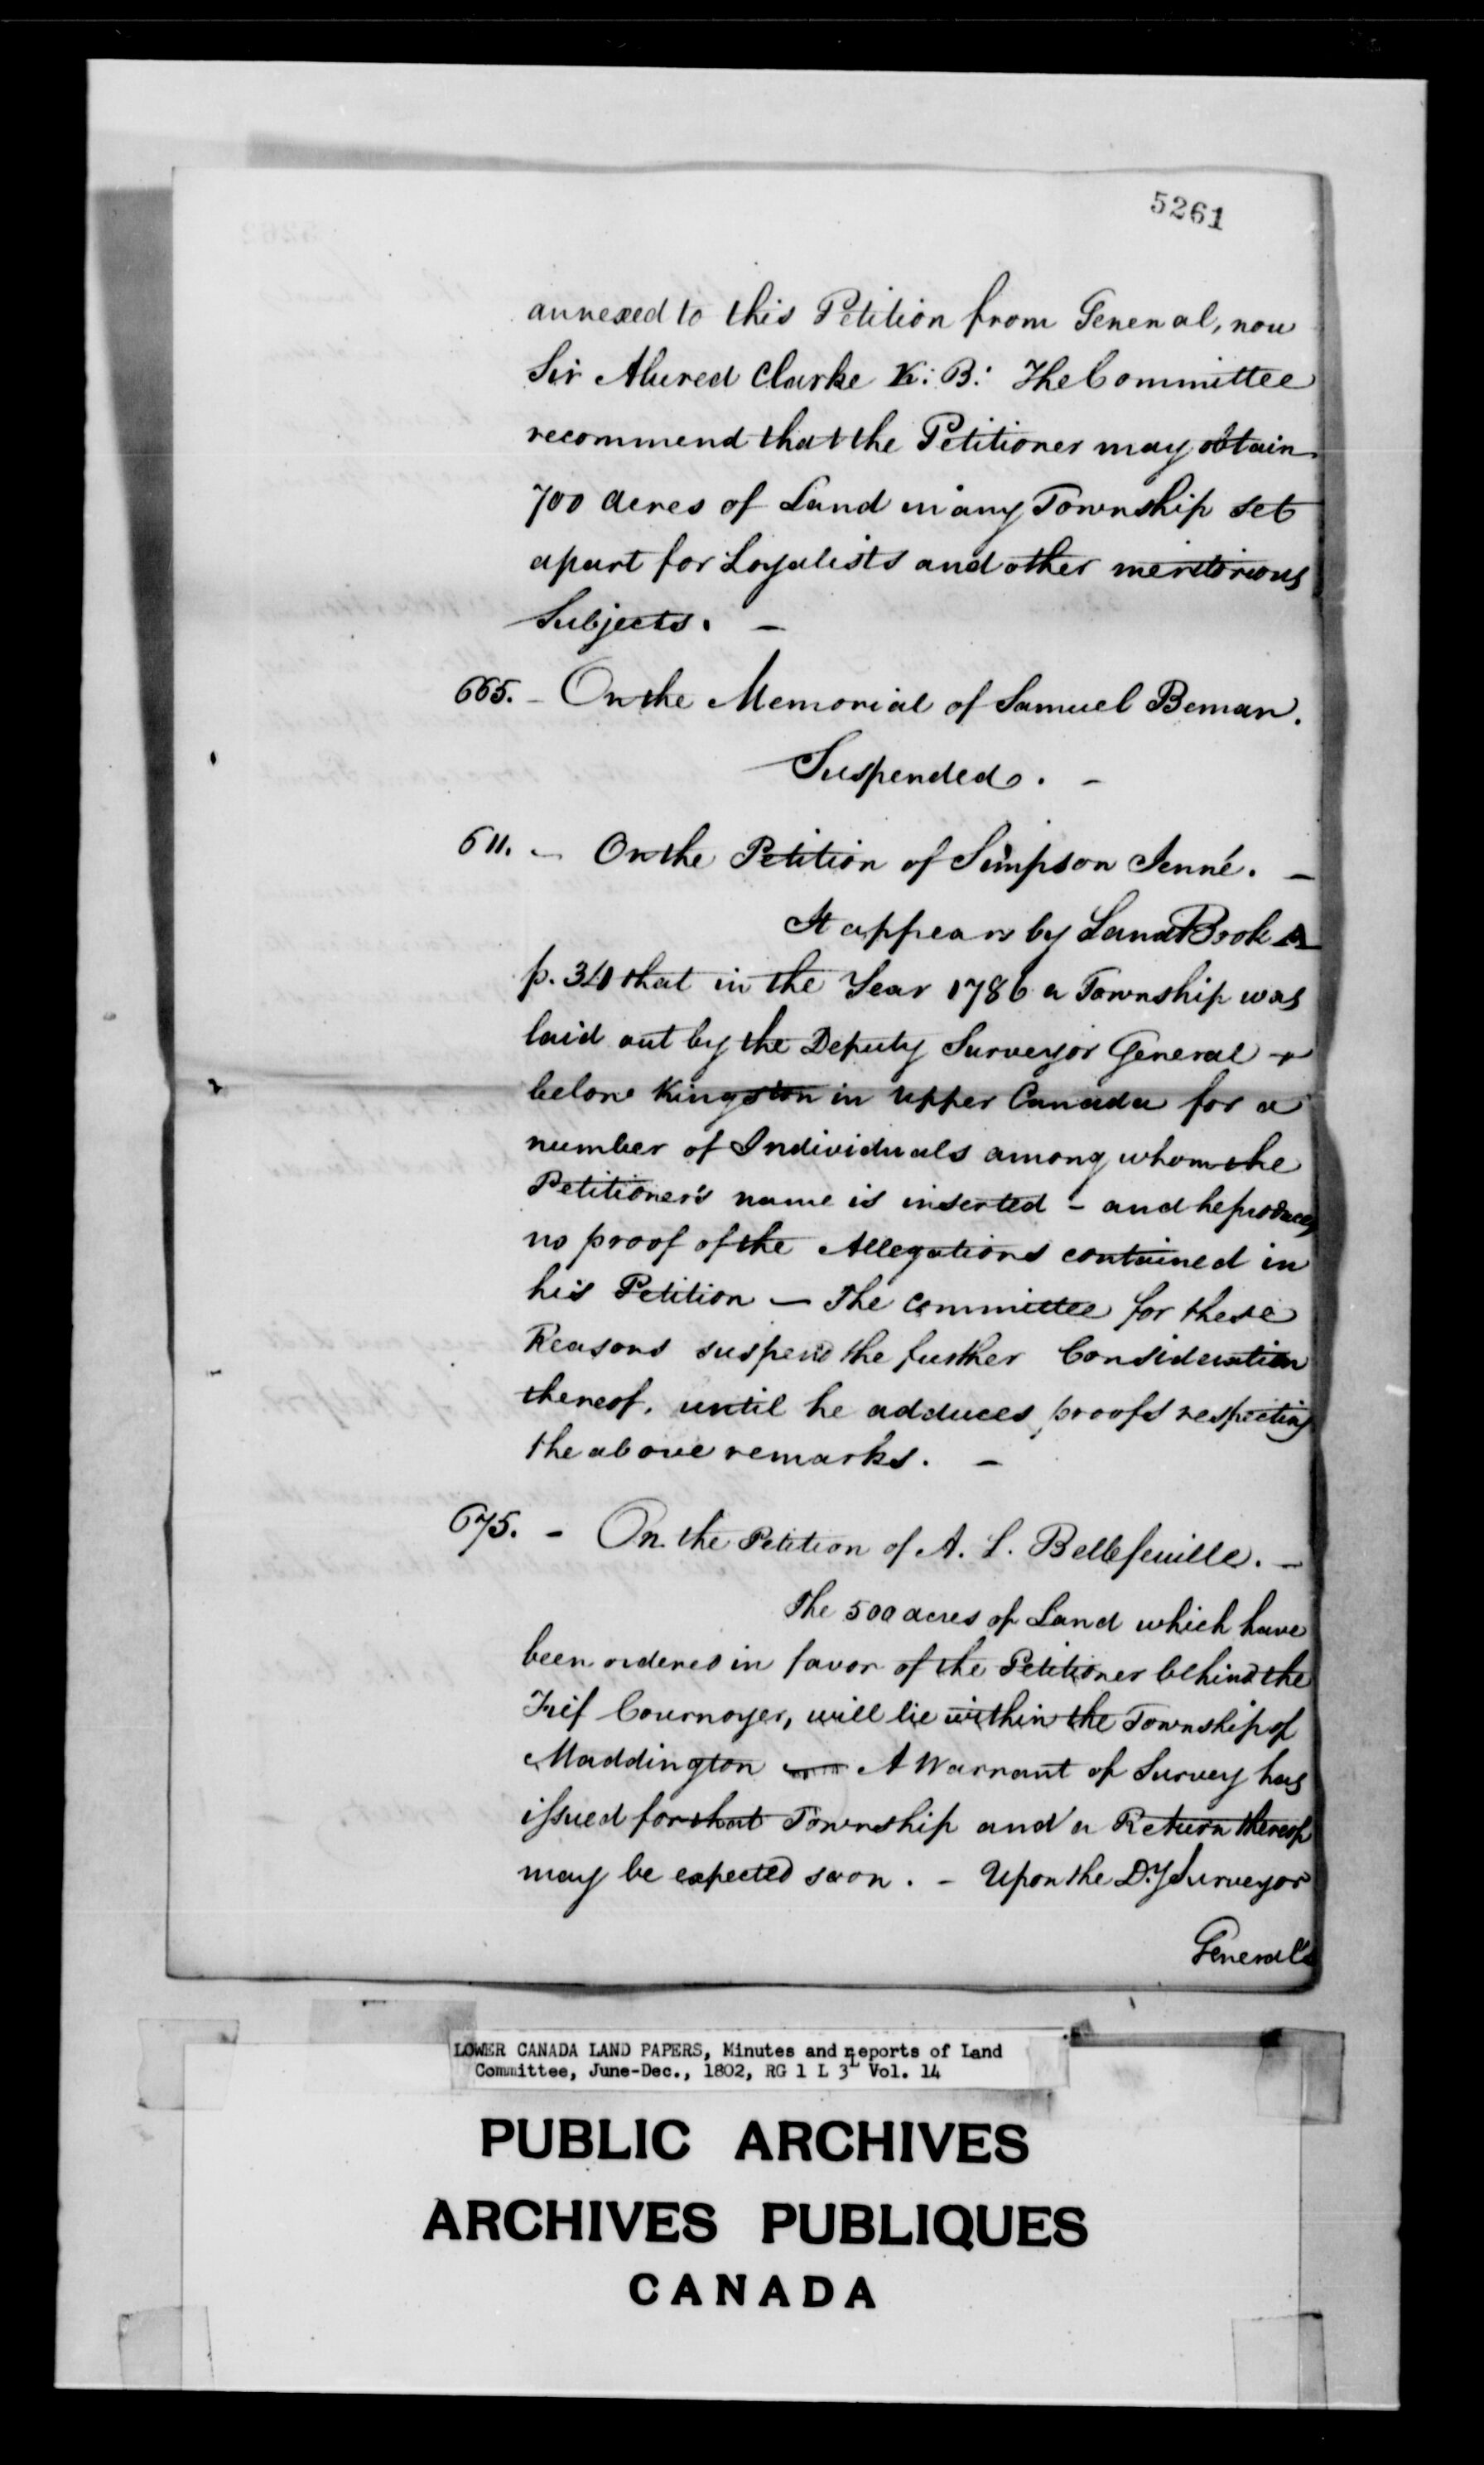 5261
annexed to this Petition from General, now
Sir Alured Clarke K: B: The Committee
recommend that the Petitioner may obtain
700 acres of Land in any Township set
apart for Loyalists and other meritorious
Subjects. —
665. – On the Memorial of Samuel Beman.
Suspended. –
611. – On the Petition of Simpson Jenné. –
It appears by Land Book A
p. 341 that in the Year 1786 a Township was
laid out by the Deputy Surveyor General
below Kingston in Upper Canada for a
number of Individuals among whom the
Petitioner's name is inserted – and he produces
no proof of the Allegations contained in
his Petition — The Committee for these
Reasons suspend the further Consideration
thereof, until he adduces proofs respecting
the above remarks. –
675. – On the Petition of A. L. Bellefeuille. –
The 500 acres of Land which have
been ordered in favor of the Petitioner behind the
Fief Cournoyer, will lie within the Township of
Maddington — A Warrant of Survey has
issued for that Township and a Return thereof
may be expected soon. – Upon the Dy. Surveyor
General's
LOWER CANADA LAND PAPERS, Minutes and Reports of Land
Committee, June-Dec., 1802, RG 1 L 3L Vol. 14
PUBLIC ARCHIVES
ARCHIVES PUBLIQUES
CANADA